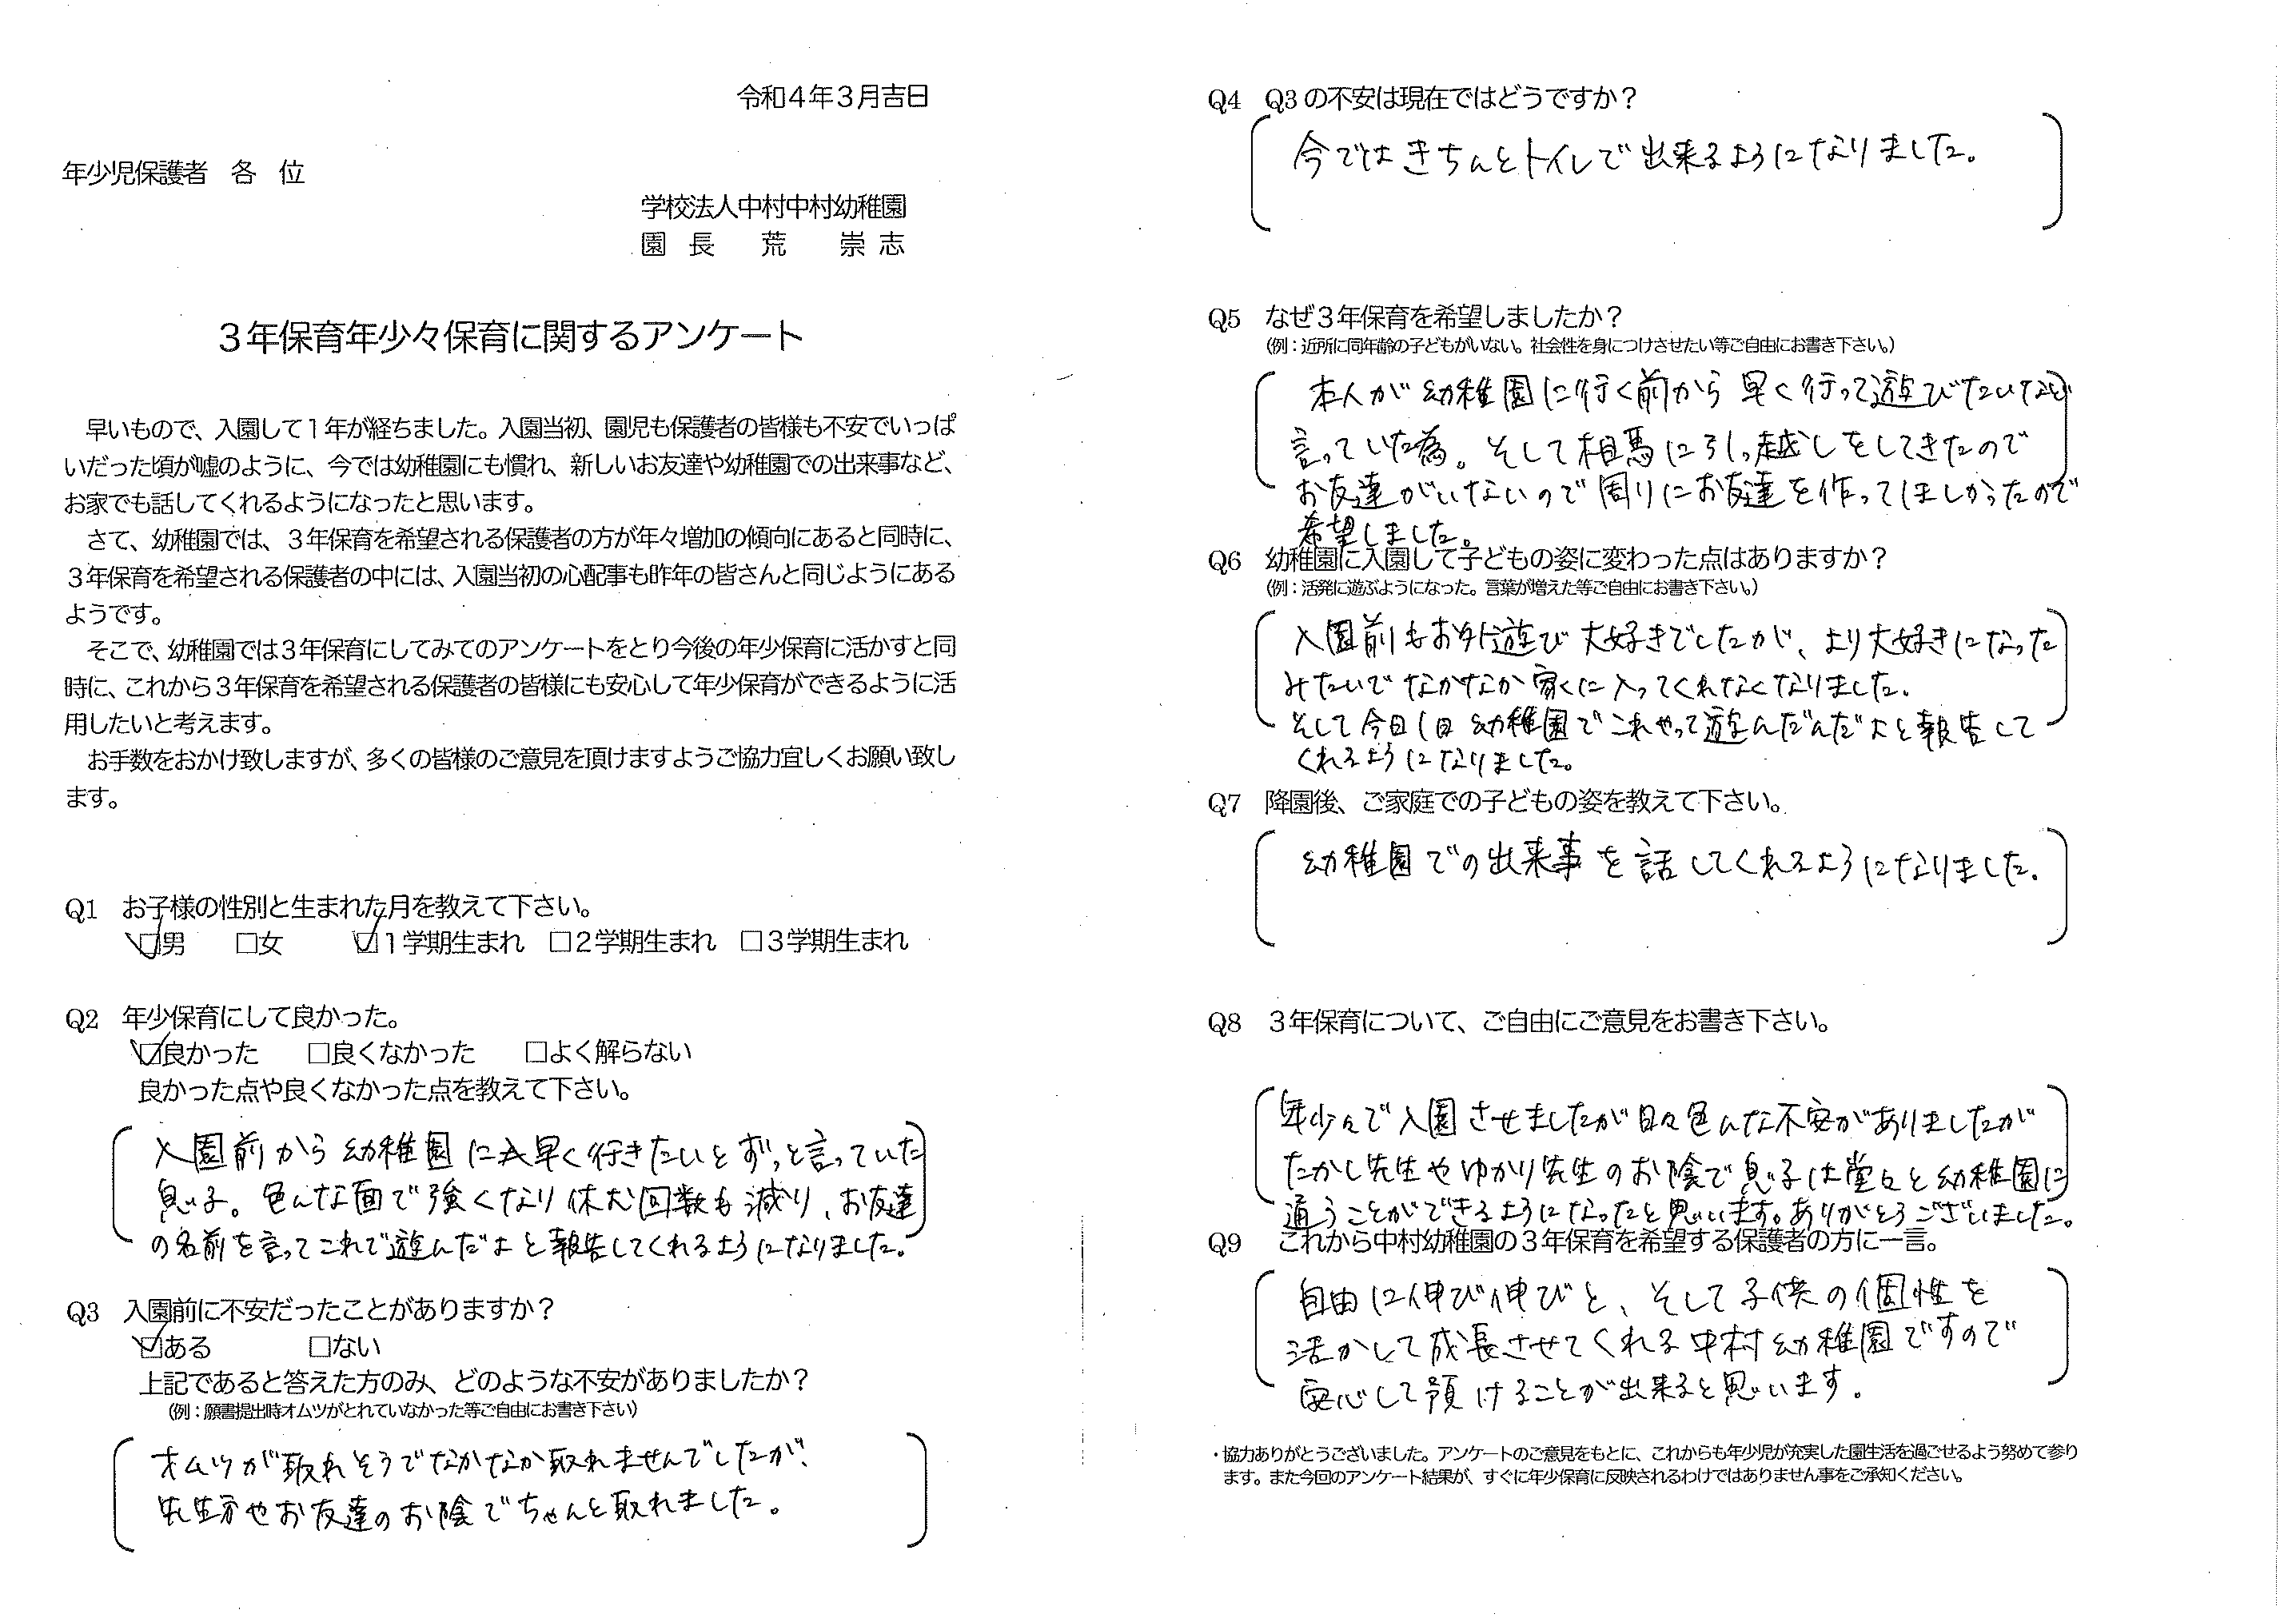 令和4年3月吉日
年少児保護者 各 位
学校法人中村中村幼稚園
園 長 荒 崇 志
3年保育年少々保育に関するアンケート
早いもので、入園して1年が経ちました。入園当初、園児も保護者の皆様も不安でいっぱ
いだった頃が嘘のように、今では幼稚園にも慣れ、新しいお友達や幼稚園での出来事など、
お家でも話してくれるようになったと思います。
さて、幼稚園では、3年保育を希望される保護者の方が年々増加の傾向にあると同時に、
3年保育を希望される保護者の中には、入園当初の心配事も昨年の皆さんと同じようにある
ようです。
そこで、幼稚園では3年保育にしてみてのアンケートをとり今後の年少保育に活かすと同
時に、これから3年保育を希望される保護者の皆様にも安心して年少保育ができるように活
用したいと考えます。
お手数をおかけ致しますが、多くの皆様のご意見を頂けますようご協力宜しくお願い致し
ます。
Q1 お子様の性別と生まれた月を教えて下さい。
☑男 □女 ☑1学期生まれ □2学期生まれ □3学期生まれ
Q2 年少保育にして良かった。
☑良かった □良くなかった □よく解らない
良かった点や良くなかった点を教えて下さい。
入園前から幼稚園に早く行きたいとずっと言っていた
息子。色んな面で強くなり休む回数も減り、お友達
の名前を言ってこれで遊んだよと報告してくれるようになりました。
Q3 入園前に不安だったことがありますか？
☑ある □ない
上記であると答えた方のみ、どのような不安がありましたか？
（例：願書提出時オムツがとれていなかった等ご自由にお書き下さい）
オムツが取れそうでなかなか取れませんでしたが、
先生方やお友達のお陰でちゃんと取れました。
Q4 Q3の不安は現在ではどうですか？
今ではきちんとトイレで出来るようになりました。
Q5 なぜ3年保育を希望しましたか？
（例：近所に同年齢の子どもがいない。社会性を身につけさせたい等ご自由にお書き下さい。）
本人が幼稚園に行く前から早く行って遊びたいなど
言っていた為。そして相馬に引っ越しをしてきたので
お友達がいないので周りにお友達を作ってほしかったので
希望しました。
Q6 幼稚園に入園して子どもの姿に変わった点はありますか？
（例：活発に遊ぶようになった。言葉が増えた等ご自由にお書き下さい。）
入園前もお外遊び大好きでしたが、より大好きになった
みたいでなかなか家に入ってくれなくなりました。
そして今日1日幼稚園でこれやって遊んだんだよと報告して
くれるようになりました。
Q7 降園後、ご家庭での子どもの姿を教えて下さい。
幼稚園での出来事を話してくれるようになりました。
Q8 3年保育について、ご自由にご意見をお書き下さい。
年少々で入園させましたが日々色んな不安がありましたが
たかし先生やゆかり先生のお陰で息子は堂々と幼稚園に
通うことができるようになったと思います。ありがとうございました。
Q9 これから中村幼稚園の3年保育を希望する保護者の方に一言。
自由に伸び伸びと、そして子供の個性を
活かして成長させてくれる中村幼稚園ですので
安心して預けることが出来ると思います。
・協力ありがとうございました。アンケートのご意見をもとに、これからも年少児が充実した園生活を過ごせるよう努めて参り
ます。また今回のアンケート結果が、すぐに年少保育に反映されるわけではありません事をご承知ください。